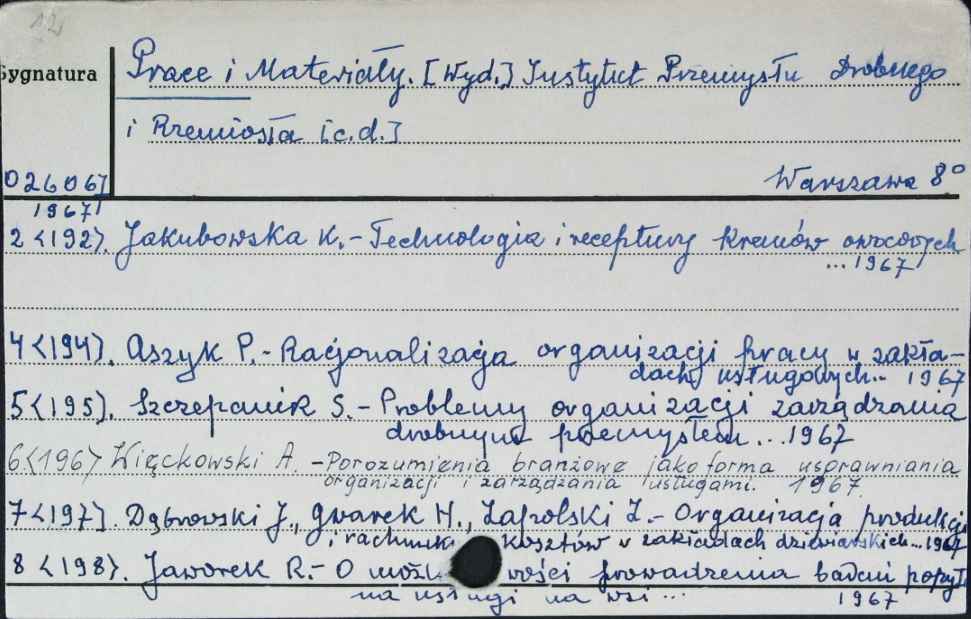 12
Sygnatura
Prace i Materiały. [Wyd.] Instytut Przemysłu Drobnego
i Rzemiosła [c.d.]
026067
Warszawa 8°
1967
2<192>. Jakubowska K.- Technologia i receptury kremów owocowych
...1967
4<194>. Aszyk P.- Racjonalizacja organizacji pracy w zakła-
dach usługowych... 1967
5<195>. Szczepanik S.- Problemy organizacji zarządzania
drobnym przemysłem...1967
6<196> Więckowski A. -Porozumienia branżowe jako forma usprawniania
organizacji i zarządzania usługami. 1967
7<197>. Dąbrowski J., Gwarek H., Zapolski Z.- Organizacja produkcji
i rachunek kosztów w zakładach dziewiarskich...1967
8<198>. Jaworek R.- O możliwości prowadzenia badań popytu
na usługi na wsi... 1967